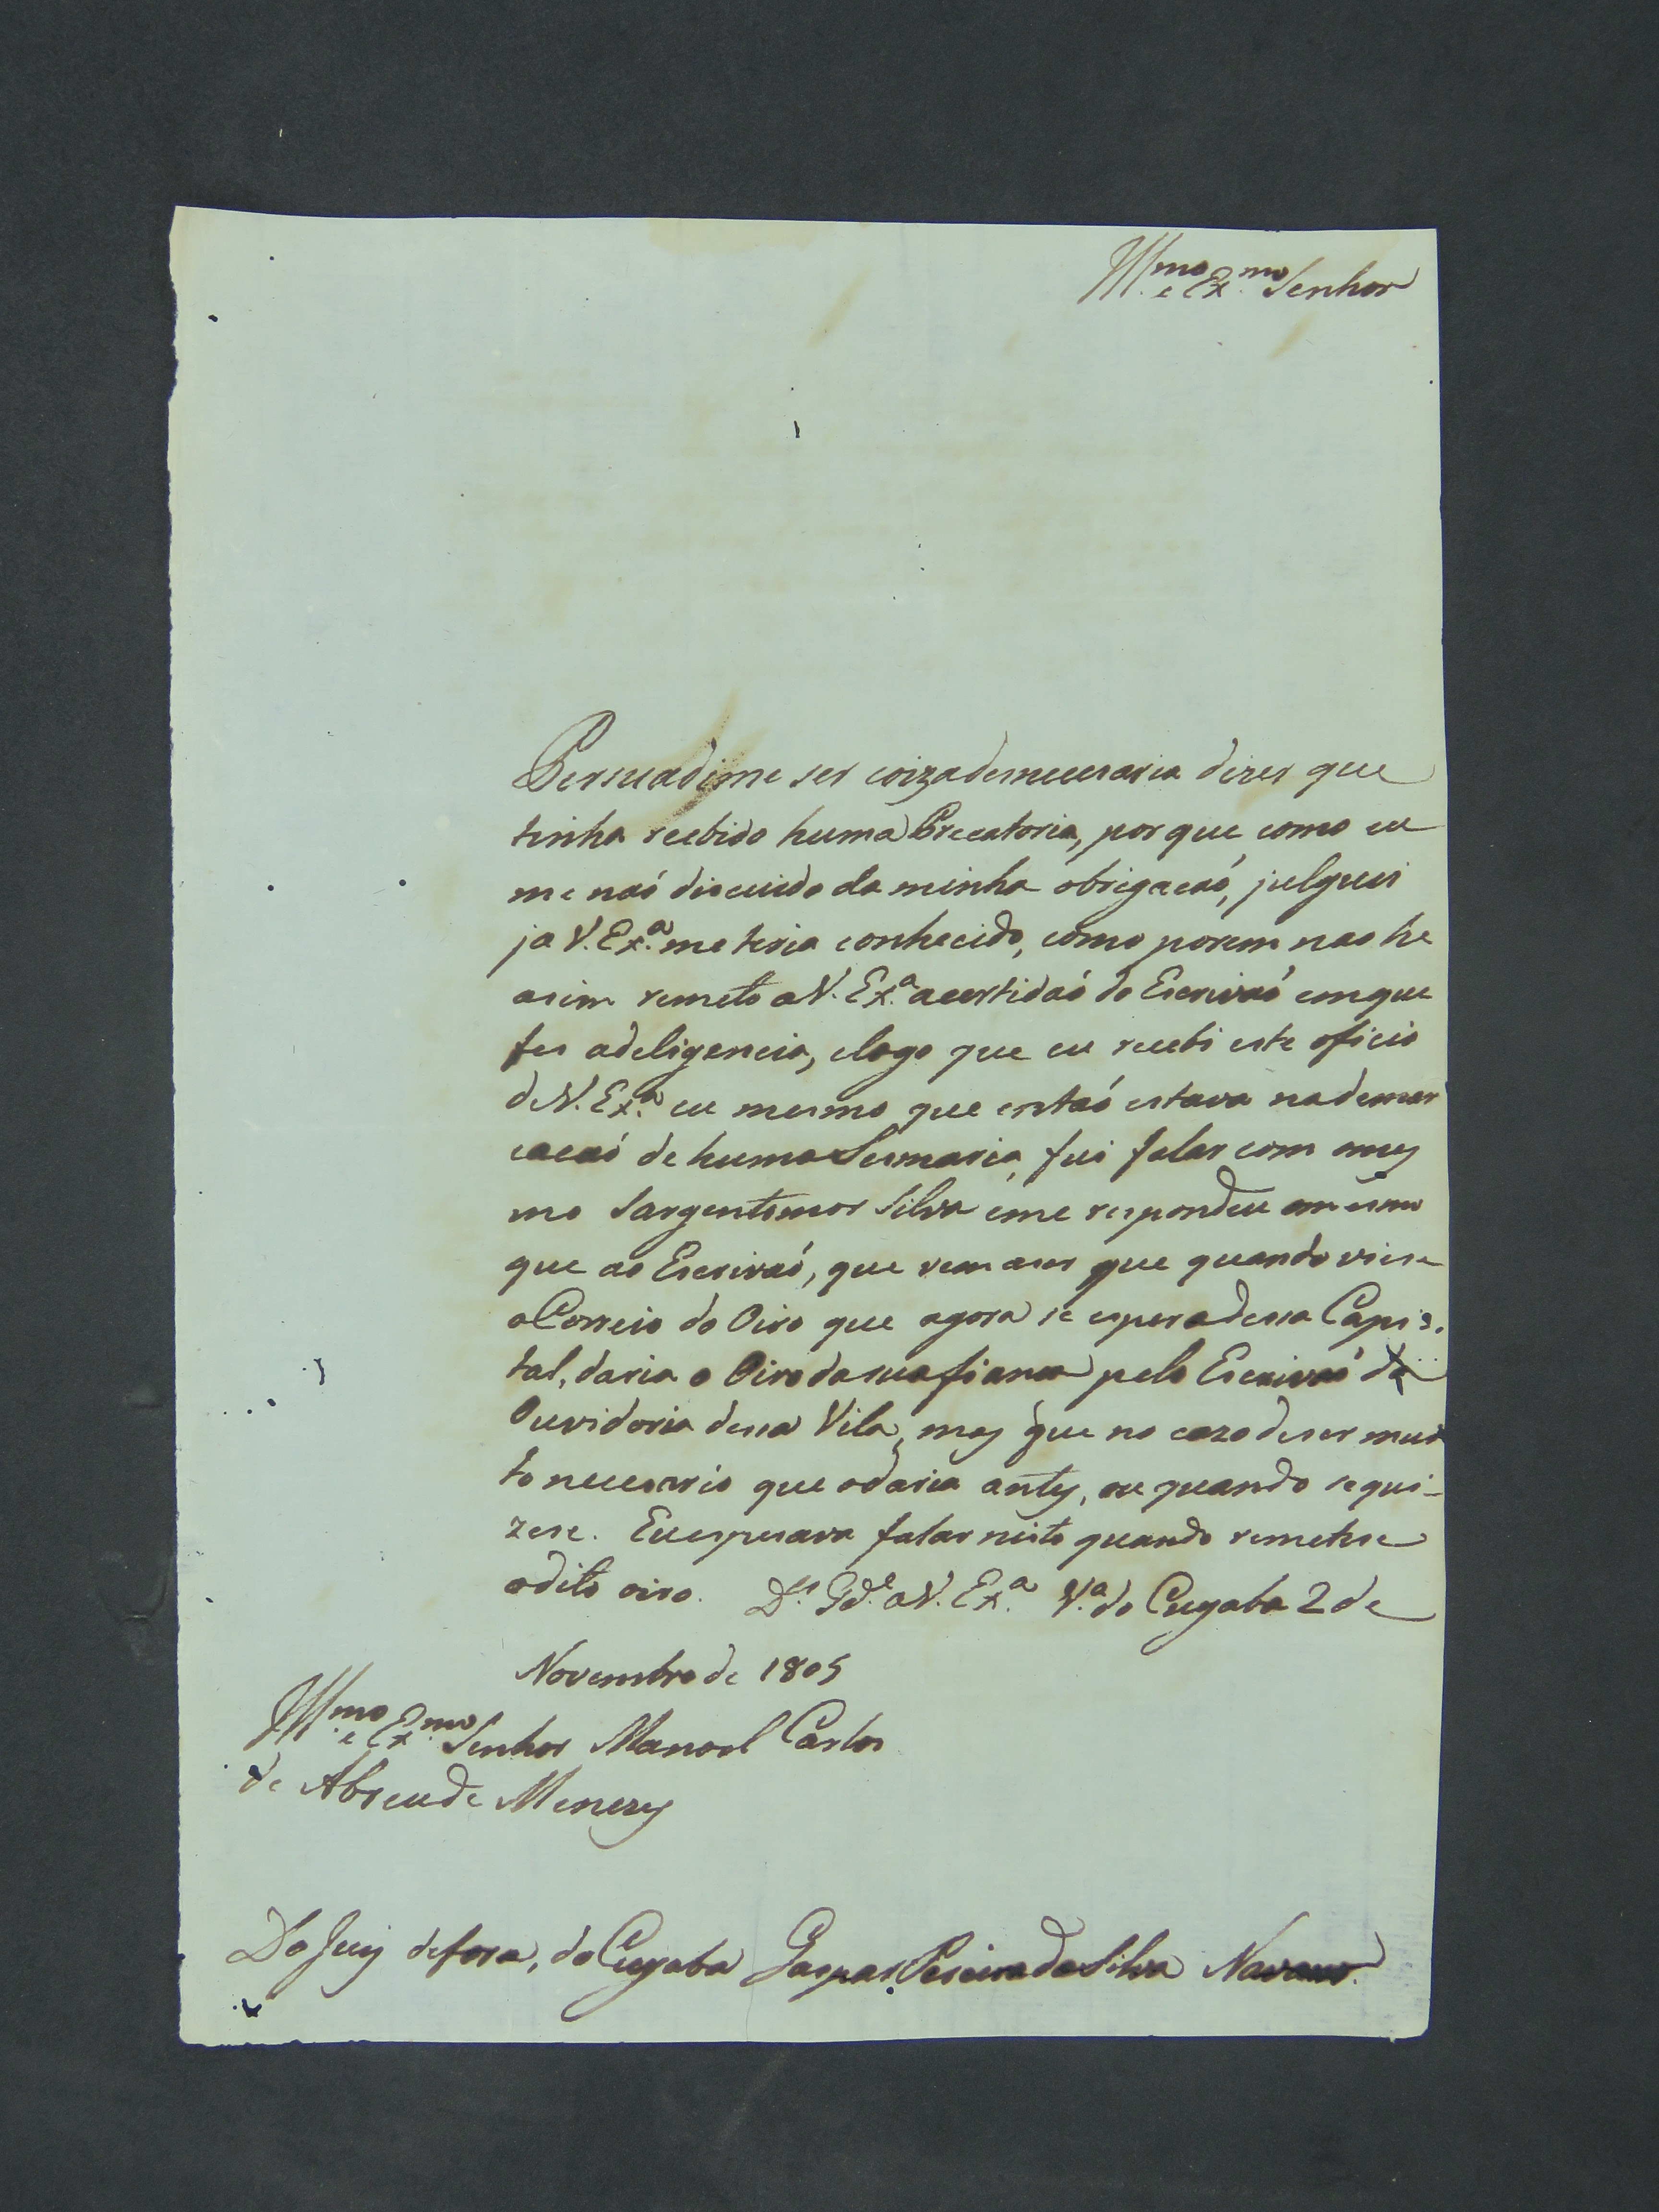 Ill.mo e Ex.mo Senhor
Persuadime ser coiza desnecesaria dizer que
tinha recebido huma Precatoria, por que como eu
me naõ discuido da minha obrigacaõ, julguei
ja V. Ex.a me teria conhecido, como porem nao he
asim remeto a V. Ex.a acertidaõ do Escrivaõ emque
fes adeligencia, elogo que eu recebi este oficio
de V. Ex.a eu mesmo que entaõ estava nademar
cacaõ de huma Sesmaria, fui falar com omes
mo Sargentomor Silva eme respondeu omesmo
que ao Escrivaõ, que vem aser que quando viese
oCorreio do Oiro que agora se espera desa Capi
tal, daria o Oiro dasua fianca pelo Escrivaõ da
Ouvidoria desa Vila, mas que no cazo deser mui
to necesario que odaria antes, ou quando sequi-
zese. Eu esperava falar nisto quando remetese
odito oiro. D.s G.de a V. Ex.a V.a do Cuyaba 2 de
Novembro de 1805
Ill.mo e Ex.mo Senhor Manoel Carlos
de Abreu de Menezes
Do Juiz defora, do Cuyaba Gaspar Pereira da Silva Navarro.